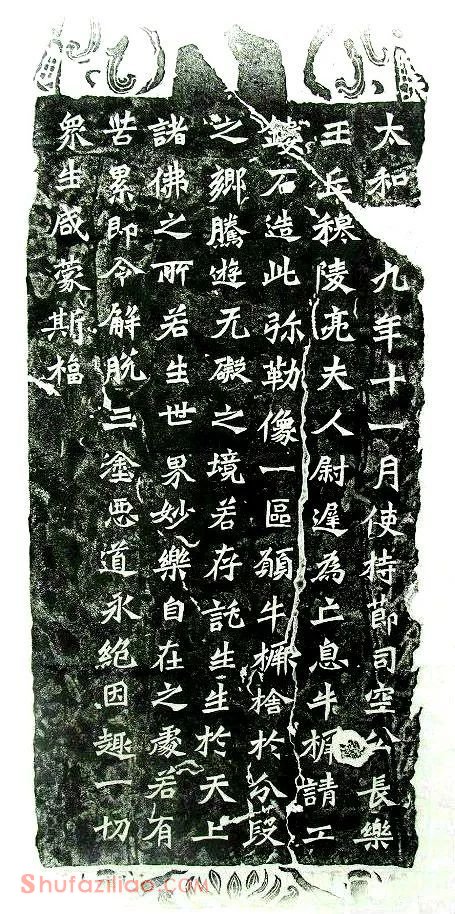 太和 九年十一月使持節司空公長樂
王丘穆陵亮夫人尉遲為亡息牛橛請工
鏤石造此弥勒像一區願牛橛捨於分段
之鄉騰遊无礙之境若存託生生於天上
諸佛之所若生世界妙樂自在之處若有
苦累即令解脫三塗惡道永絕因趣一切
眾生咸蒙斯福
Shufaziliao.com